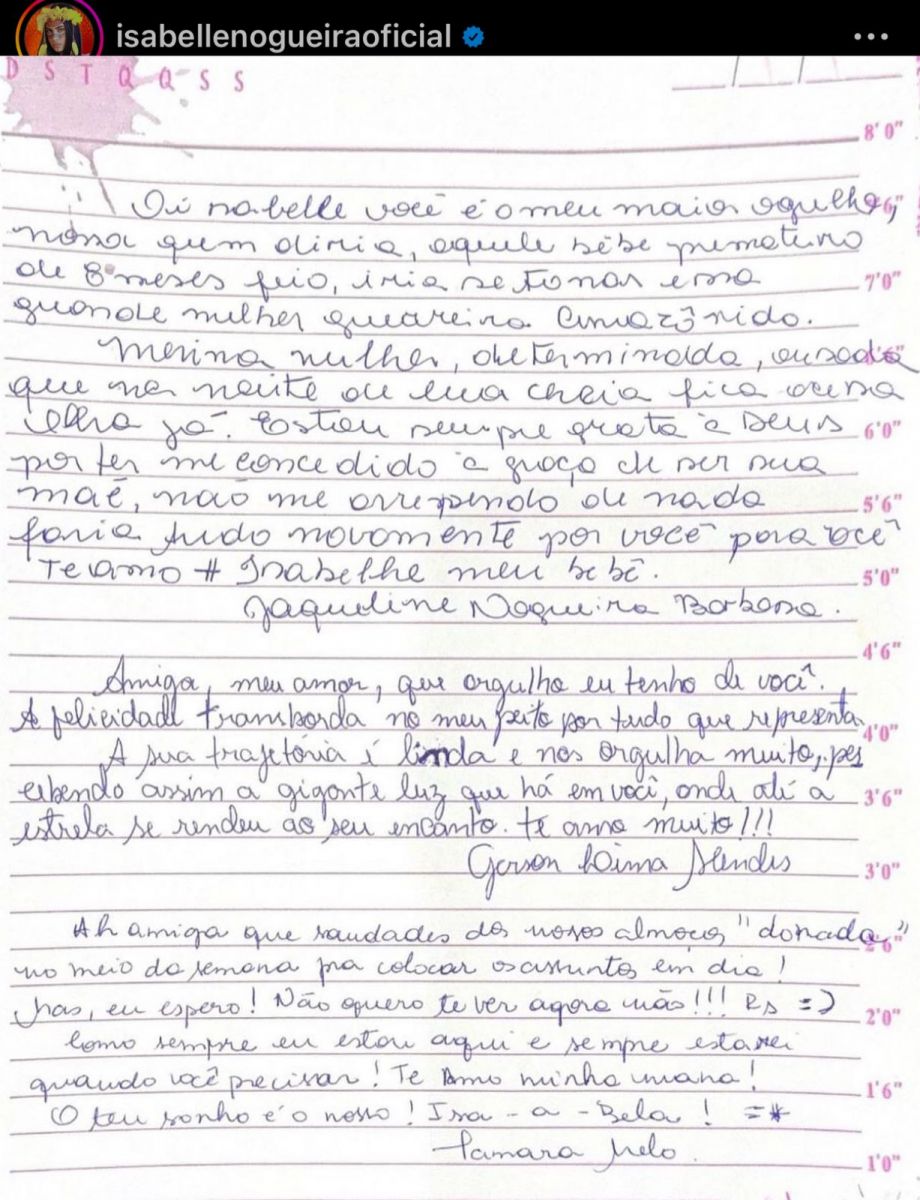 isabellenogueiraoficial
D S T Q Q S S
8'0"
Oi isabelle você é o meu maior ogulho,
nossa quem diria, aquele bêbe prematuro
de 8 meses feio, iria se tonar essa
7'0"
grande mulher guerreira Amazônida.
Menina mulher, determinada, ousada
que na noite de lua cheia fica ousa
olha já. Estou sempre grata a Deus
6'0"
por ter me concedido a graça de ser sua
maê, não me arrependo de nada
5'6"
faria tudo novamente por você para você
Te amo # Isabelhe meu bebê.
5'0"
Jaqueline Nogueira Barbosa.
4'6"
Amiga, meu amor, que orgulho eu tenho de você.
A felicidade transborda no meu peito por tudo que representa.
4'0"
A sua trajetória é linda e nos orgulha muito, per
cebendo assim a gigante luz que há em você, onde até a
3'6"
estrela se rendeu ao seu encanto. te amo muito!!!
Gerson Mendes
3'0"
Ah amiga que saudades dos nossos almoços "donada"
no meio da semana pra colocar os assuntos em dia!
Mas, eu espero! Não quero te ver agora não!!! Rs =)
2'0"
Como sempre eu estou aqui e sempre estarei
quando você precisar! Te Amo minha mana!
1'6"
O teu sonho é o nosso! Isa - a - Bela! =*
Tamara Melo.
1'0"